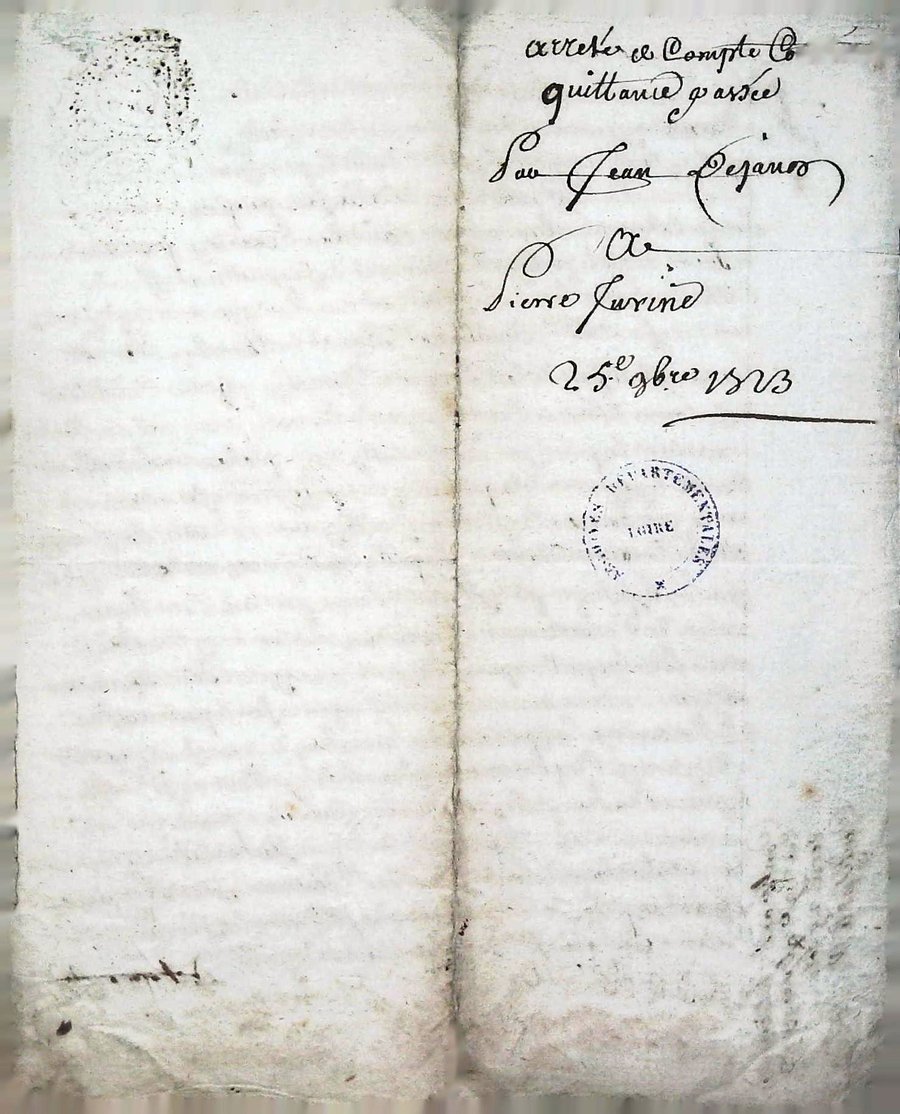 arreté de Compte &
quittance passée
Par Jean Dejanos
A
Pierre Jurine
25.e 9bre 1823
ARCHIVES DÉPARTEMENTALES
LOIRE